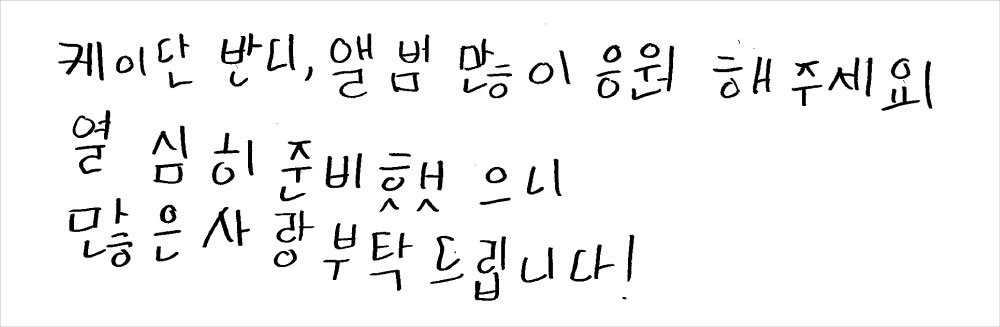 케이단 반디, 앨범 많이 응원 해주세요
열심히 준비했으니
많은 사랑 부탁드립니다!